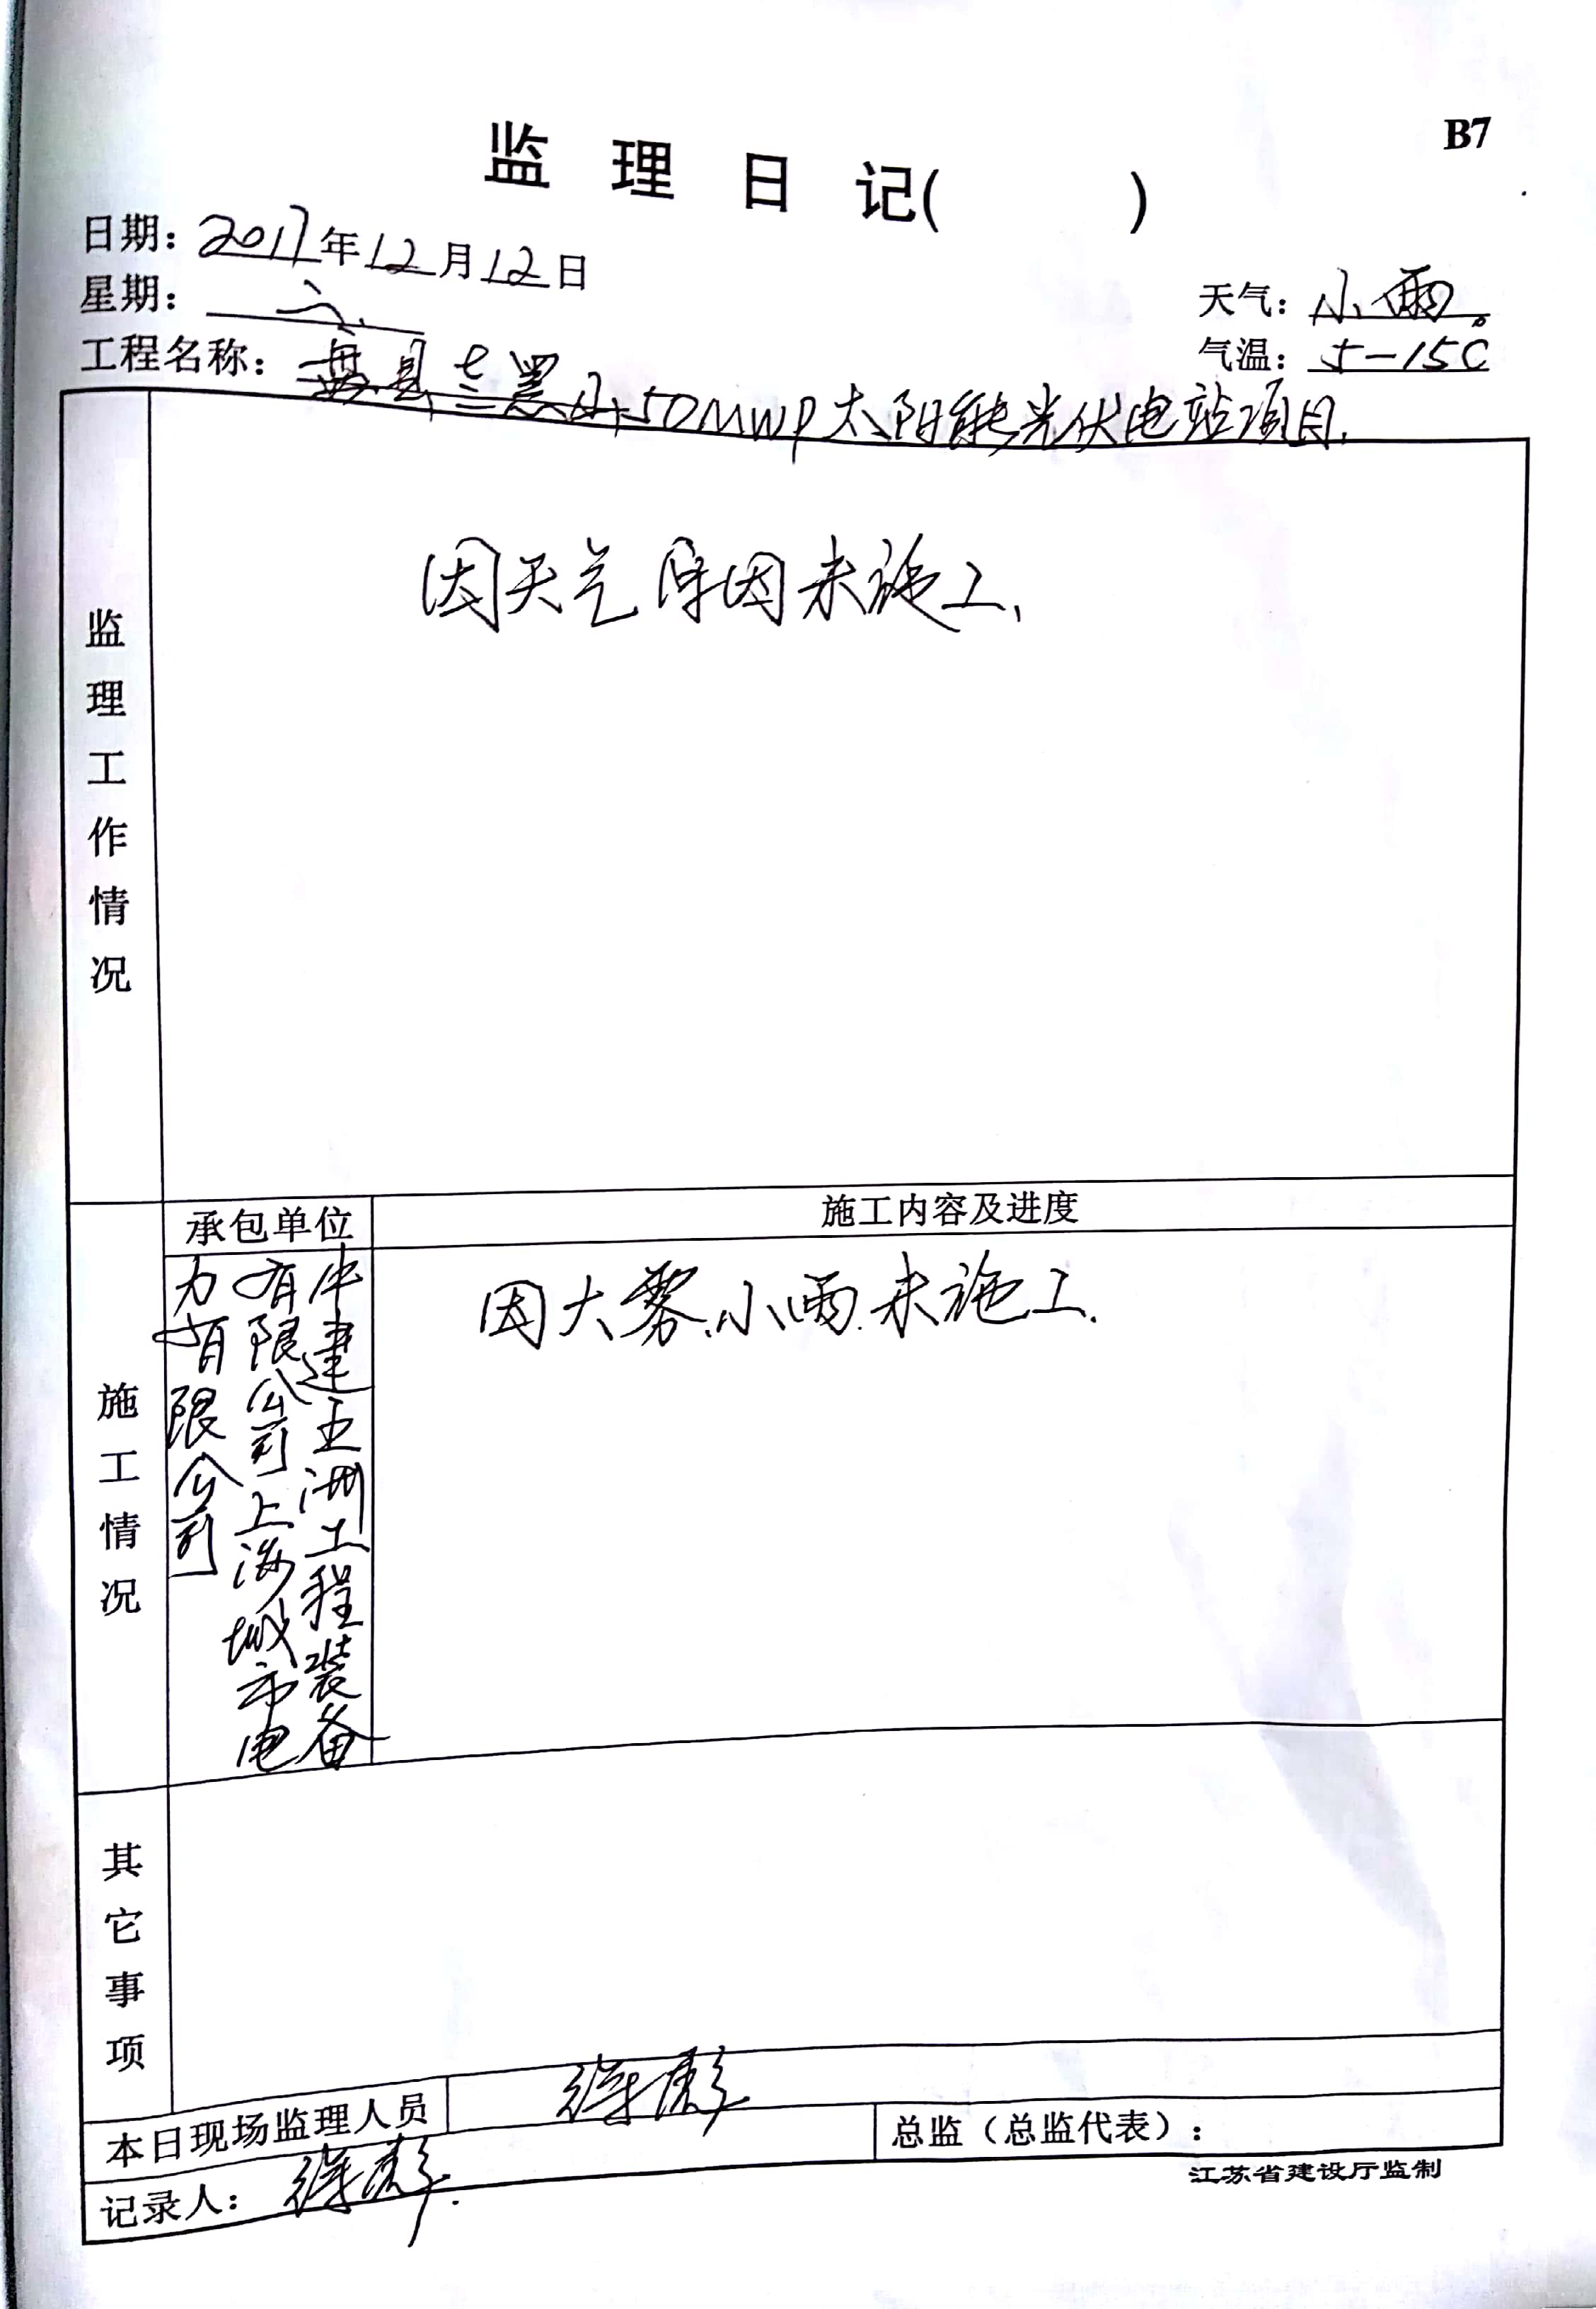 B7
监理日记(    )
日期：2017年12月12日
星期：六.
天气：小雨.
工程名称：盘县 黑山50MWP太阳能光伏电站项目.
气温：5-15℃
监理工作情况
因天气原因未施工、
施工情况
承包单位
施工内容及进度
中建亚洲工程装备
有限公司上海城市电
力有限公司
因大雾.小雨.未施工.
其它事项
本日现场监理人员
总监（总监代表）：
记录人：
江苏省建设厅监制